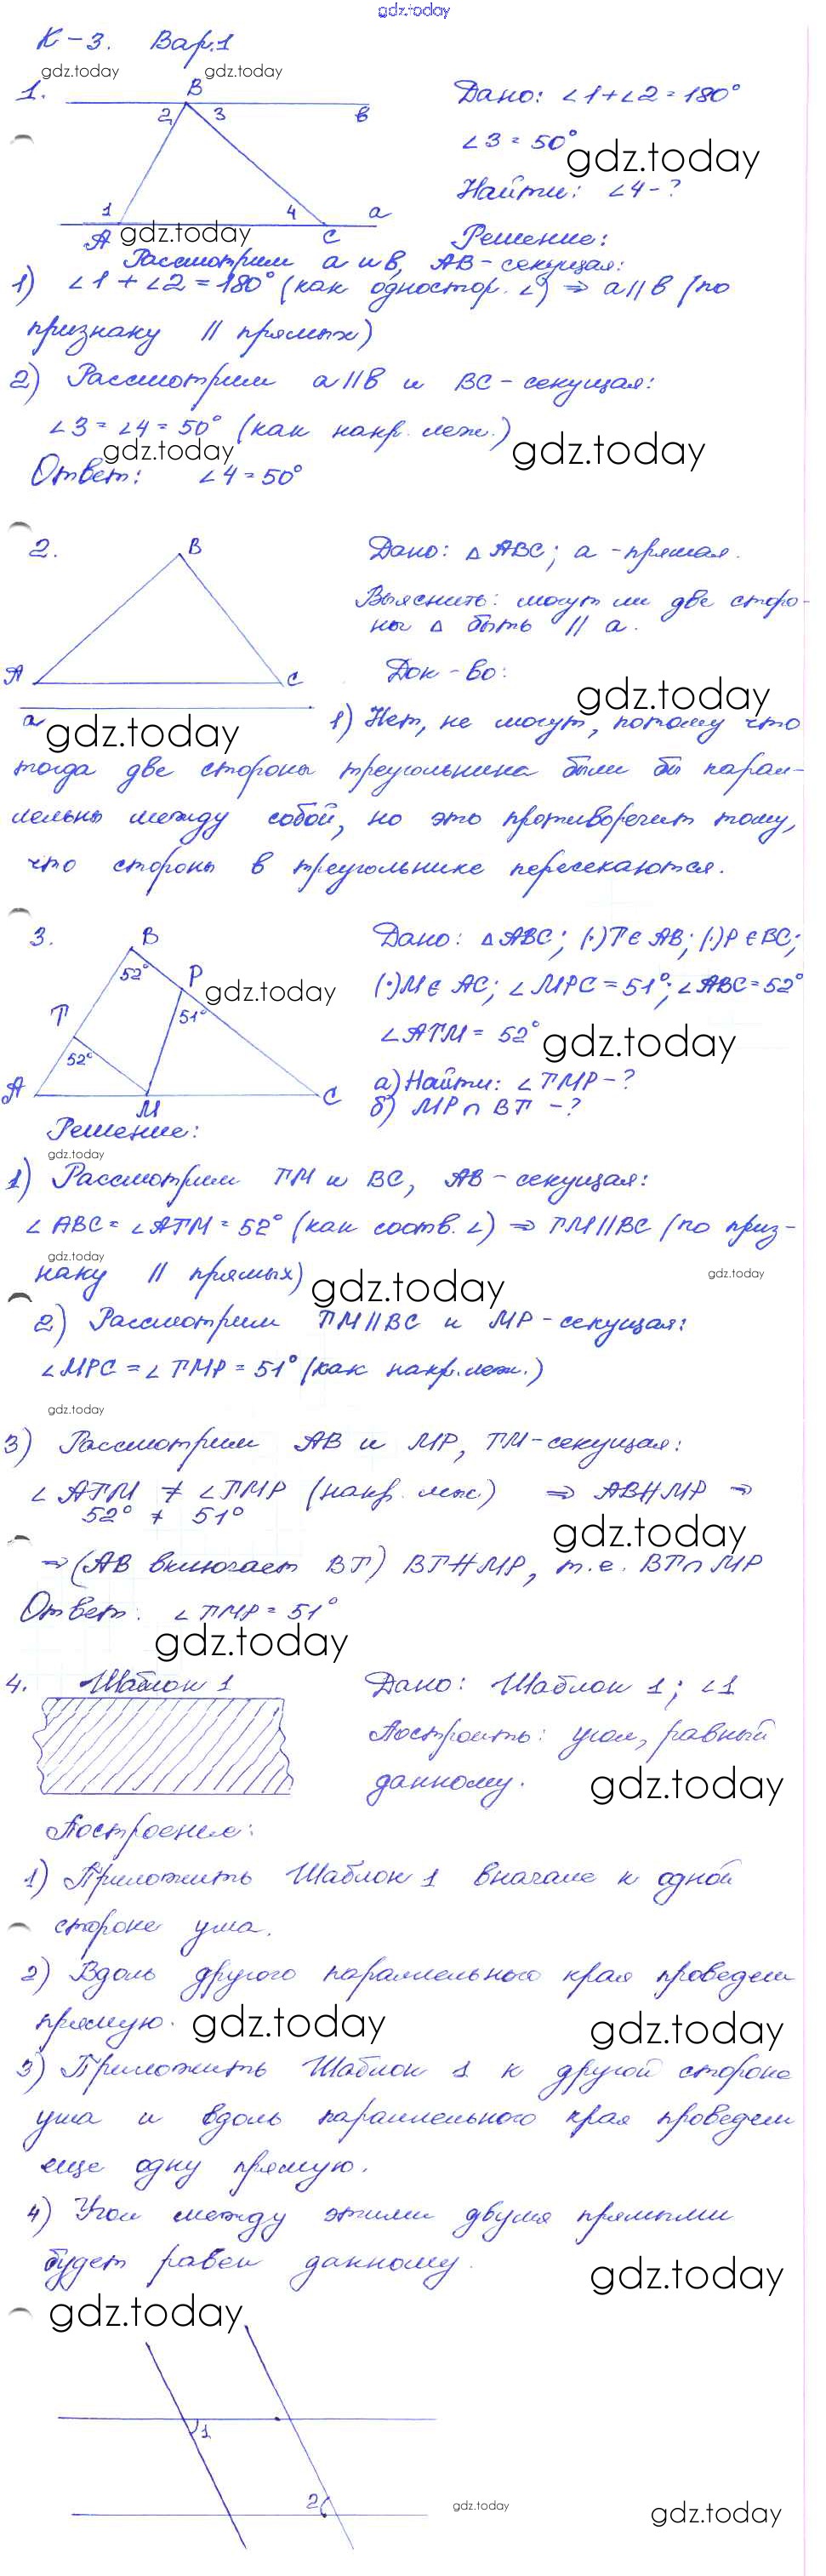 gdz.today
К-3. Вар.1
gdz.today gdz.today
1. B Дано: ∠1+∠2=180°
2 3 в
∠3=50° gdz.today
Найти: ∠4-?
1 4 a
A gdz.today C Решение:
Рассмотрим a и в, AB-секущая:
1) ∠1+∠2=180° (как одностор. ∠) ⇒ a∥в (по
признаку ∥ прямых)
2) Рассмотрим a∥в и BC-секущая:
∠3=∠4=50° (как накр. леж.)
gdz.today gdz.today
Ответ: ∠4=50°
2. B Дано: △ABC; a-прямая.
Выяснить: могут ли две сторо-
ны △ быть ∥ a.
A C Док-во:
gdz.today
a gdz.today 1) Нет, не могут, потому что
тогда две стороны треугольника были бы парал-
лельны между собой, но это противоречит тому,
что стороны в треугольнике пересекаются.
3. B Дано: △ABC; (·)T∈AB; (·)P∈BC;
52° P gdz.today (·)M∈AC; ∠MPC=51°; ∠ABC=52°
T 51° ∠ATM=52° gdz.today
52° а) Найти: ∠TMP-?
A M C б) MP∩BT-?
Решение:
gdz.today
1) Рассмотрим TM и BC, AB-секущая:
∠ABC=∠ATM=52° (как соотв. ∠) ⇒ TM∥BC (по приз-
gdz.today
наку ∥ прямых) gdz.today gdz.today
2) Рассмотрим TM∥BC и MP-секущая:
∠MPC=∠TMP=51° (как накр. леж.)
gdz.today
3) Рассмотрим AB и MP, TM-секущая:
∠ATM ≠ ∠TMP (накр. леж.) ⇒ AB∦MP ⇒
52° ≠ 51°
gdz.today
⇒ (AB включает BT) BT∦MP, т.е. BT∩MP
Ответ: ∠TMP=51°
gdz.today
4. Шаблон 1 Дано: Шаблон 1; ∠1
Построить: угол, равный
данному. gdz.today
Построение:
1) Приложить Шаблон 1 вначале к одной
стороне угла.
2) Вдоль другого параллельного края проведем
прямую. gdz.today gdz.today
3) Приложить Шаблон 1 к другой стороне
угла и вдоль параллельного края проведем
еще одну прямую.
4) Угол между этими двумя прямыми
будет равен данному.
gdz.today
gdz.today
1
2 gdz.today gdz.today